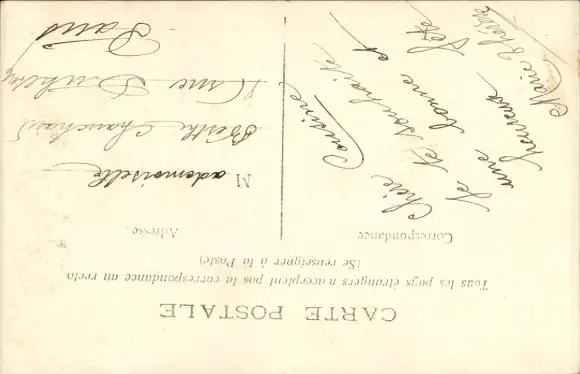 CARTE POSTALE
Tous les pays étrangers n'acceptent pas la correspondance au recto
(Se renseigner à la Poste)
Correspondance
Adresse
Chère Cousine
Je te souhaite
une bonne et
heureuse fête
Marie Thérèse
Mademoiselle
Berthe
Rue
Paris